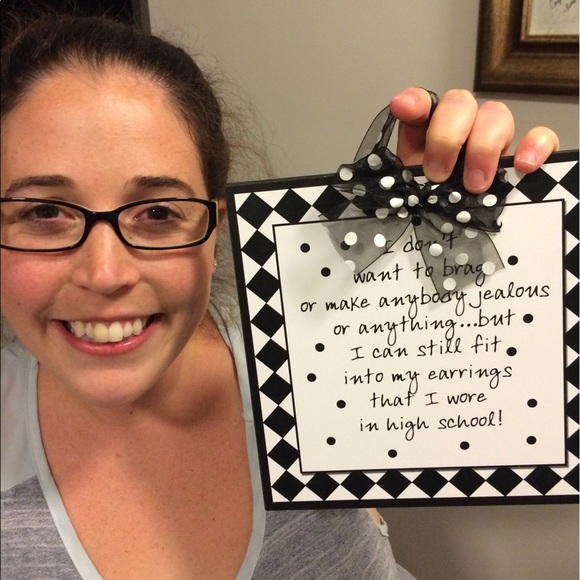 I don't
want to brag
or make anybody jealous
or anything...but
I can still fit
into my earrings
that I wore
in high school!